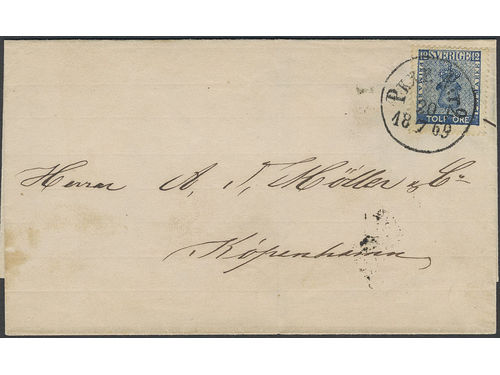 SVERIGE
TOLF ÖRE
20
18 7 69
Herrar A. T. Möller & Co
Köpenhamn